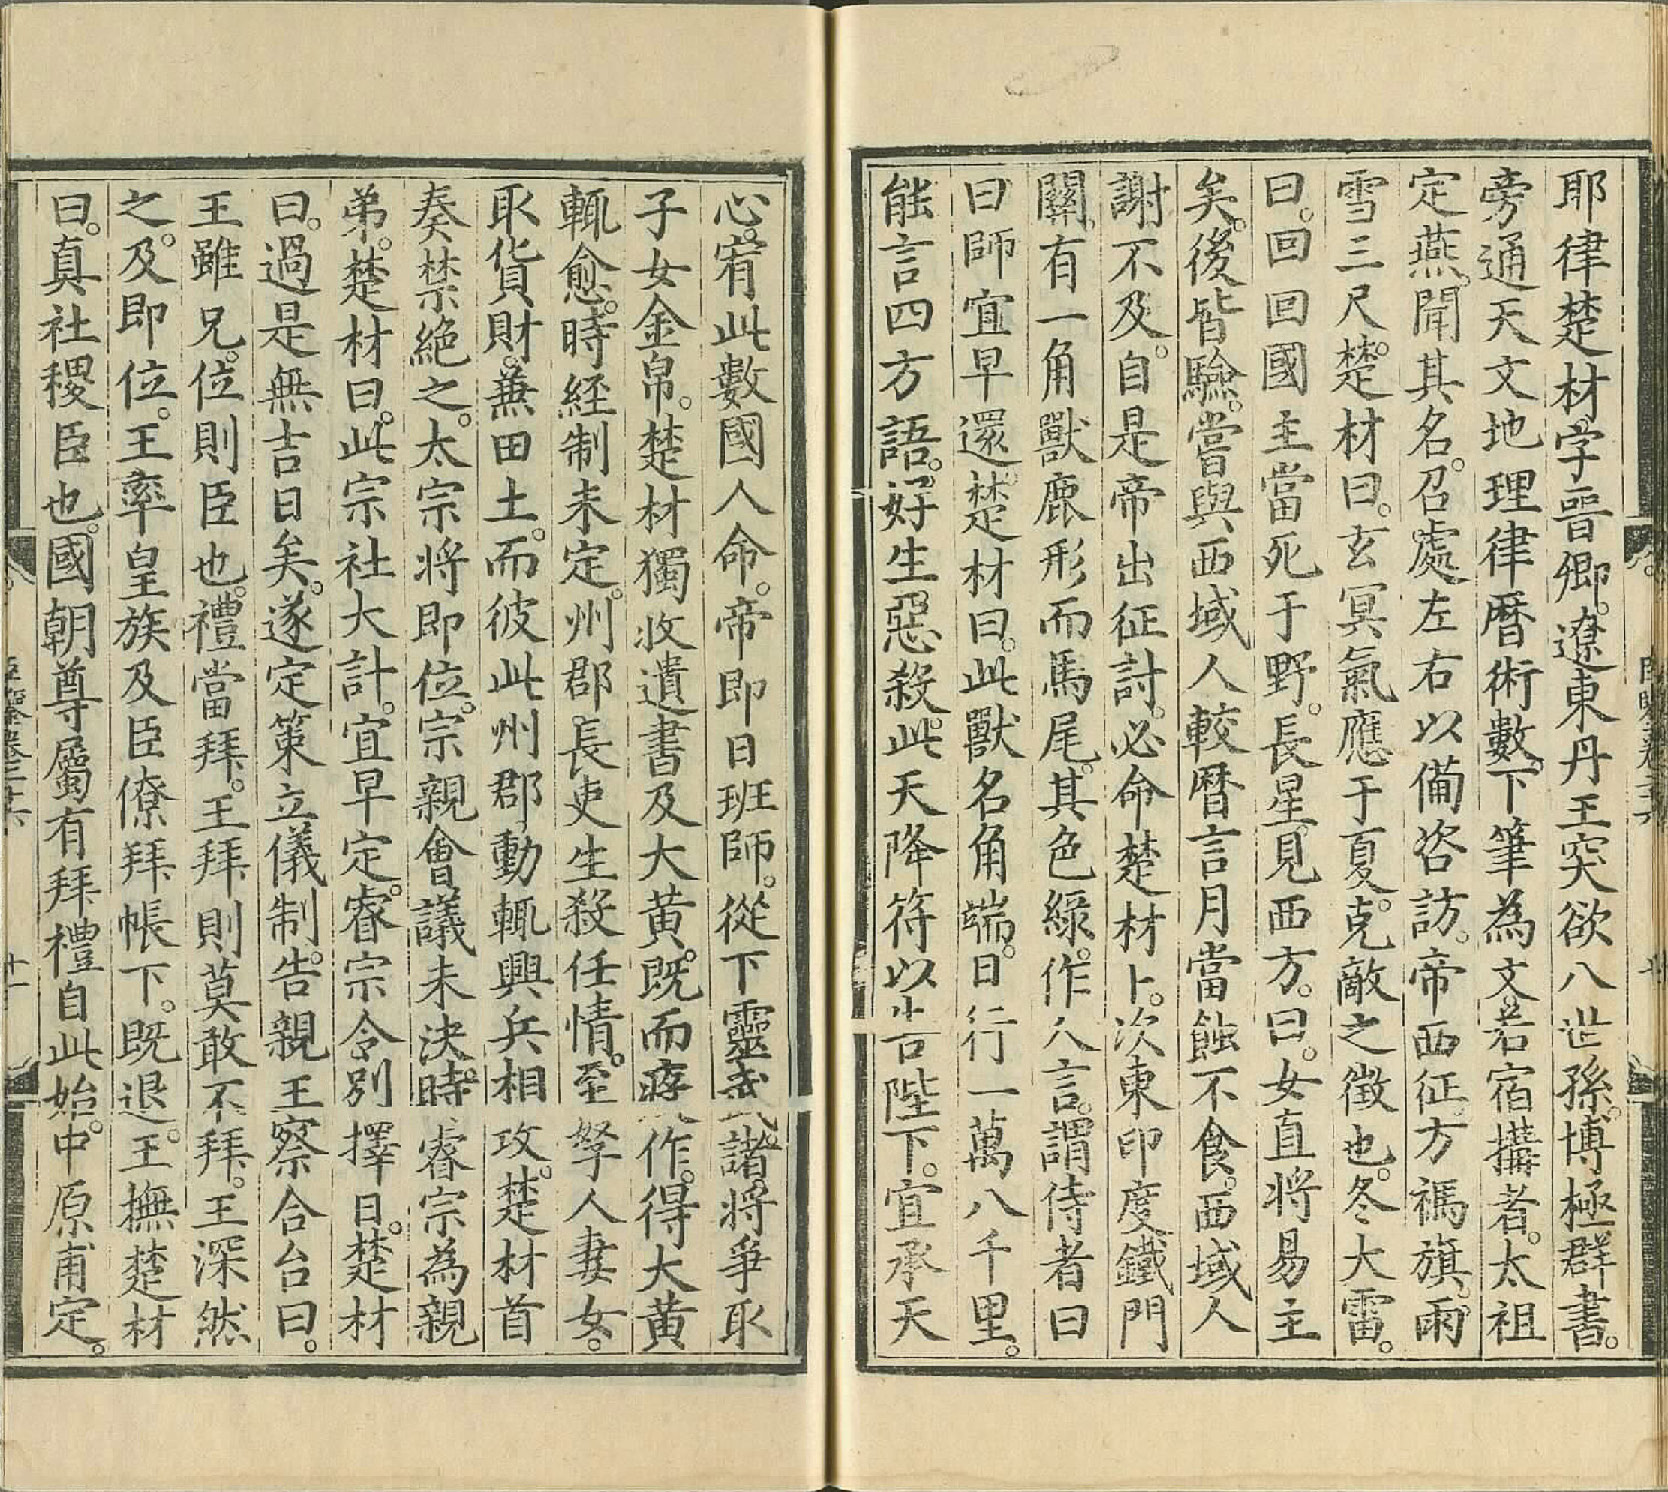 耶律楚材字晉卿。遼東丹王突欲八世孫。博極群書。
旁通天文地理律曆術數。下筆為文若宿搆者。太祖
定燕。聞其名。召處左右以備咨訪。帝西征。方禡旗。雨
雪三尺。楚材曰。玄冥氣應于夏。克敵之徵也。冬大雷。
曰。回回國主當死于野。長星見西方。曰。女直將易主
矣。後皆驗。嘗與西域人較曆。言月當蝕不食。西域人
謝不及。自是帝出征討。必命楚材卜。次東印度鐵門
關。有一角獸鹿形而馬尾。其色綠。作人言。謂侍者曰
曰師宜早還。楚材曰。此獸名角端。日行一萬八千里。
能言四方語。好生惡殺。此天降符以告陛下。宜承天
心。宥此數國人命。帝即日班師。從下靈武。諸將爭取
子女金帛。楚材獨收遺書及大黃。既而疫作。得大黃
輒愈。時經制未定。州郡長吏生殺任情。至孥人妻女。
取貨財。兼田土。而彼此州郡動輒興兵相攻。楚材首
奏禁絕之。太宗將即位。宗親會議未決。時睿宗為親
弟。楚材曰。此宗社大計。宜早定。睿宗令別擇日。楚材
曰。過是無吉日矣。遂定策立儀制。告親王察合台曰。
王雖兄。位則臣也。禮當拜。王拜則莫敢不拜。王深然
之。及即位。王率皇族及臣僚拜帳下。既退。王撫楚材
曰。真社稷臣也。國朝尊屬有拜禮自此始。中原甫定。